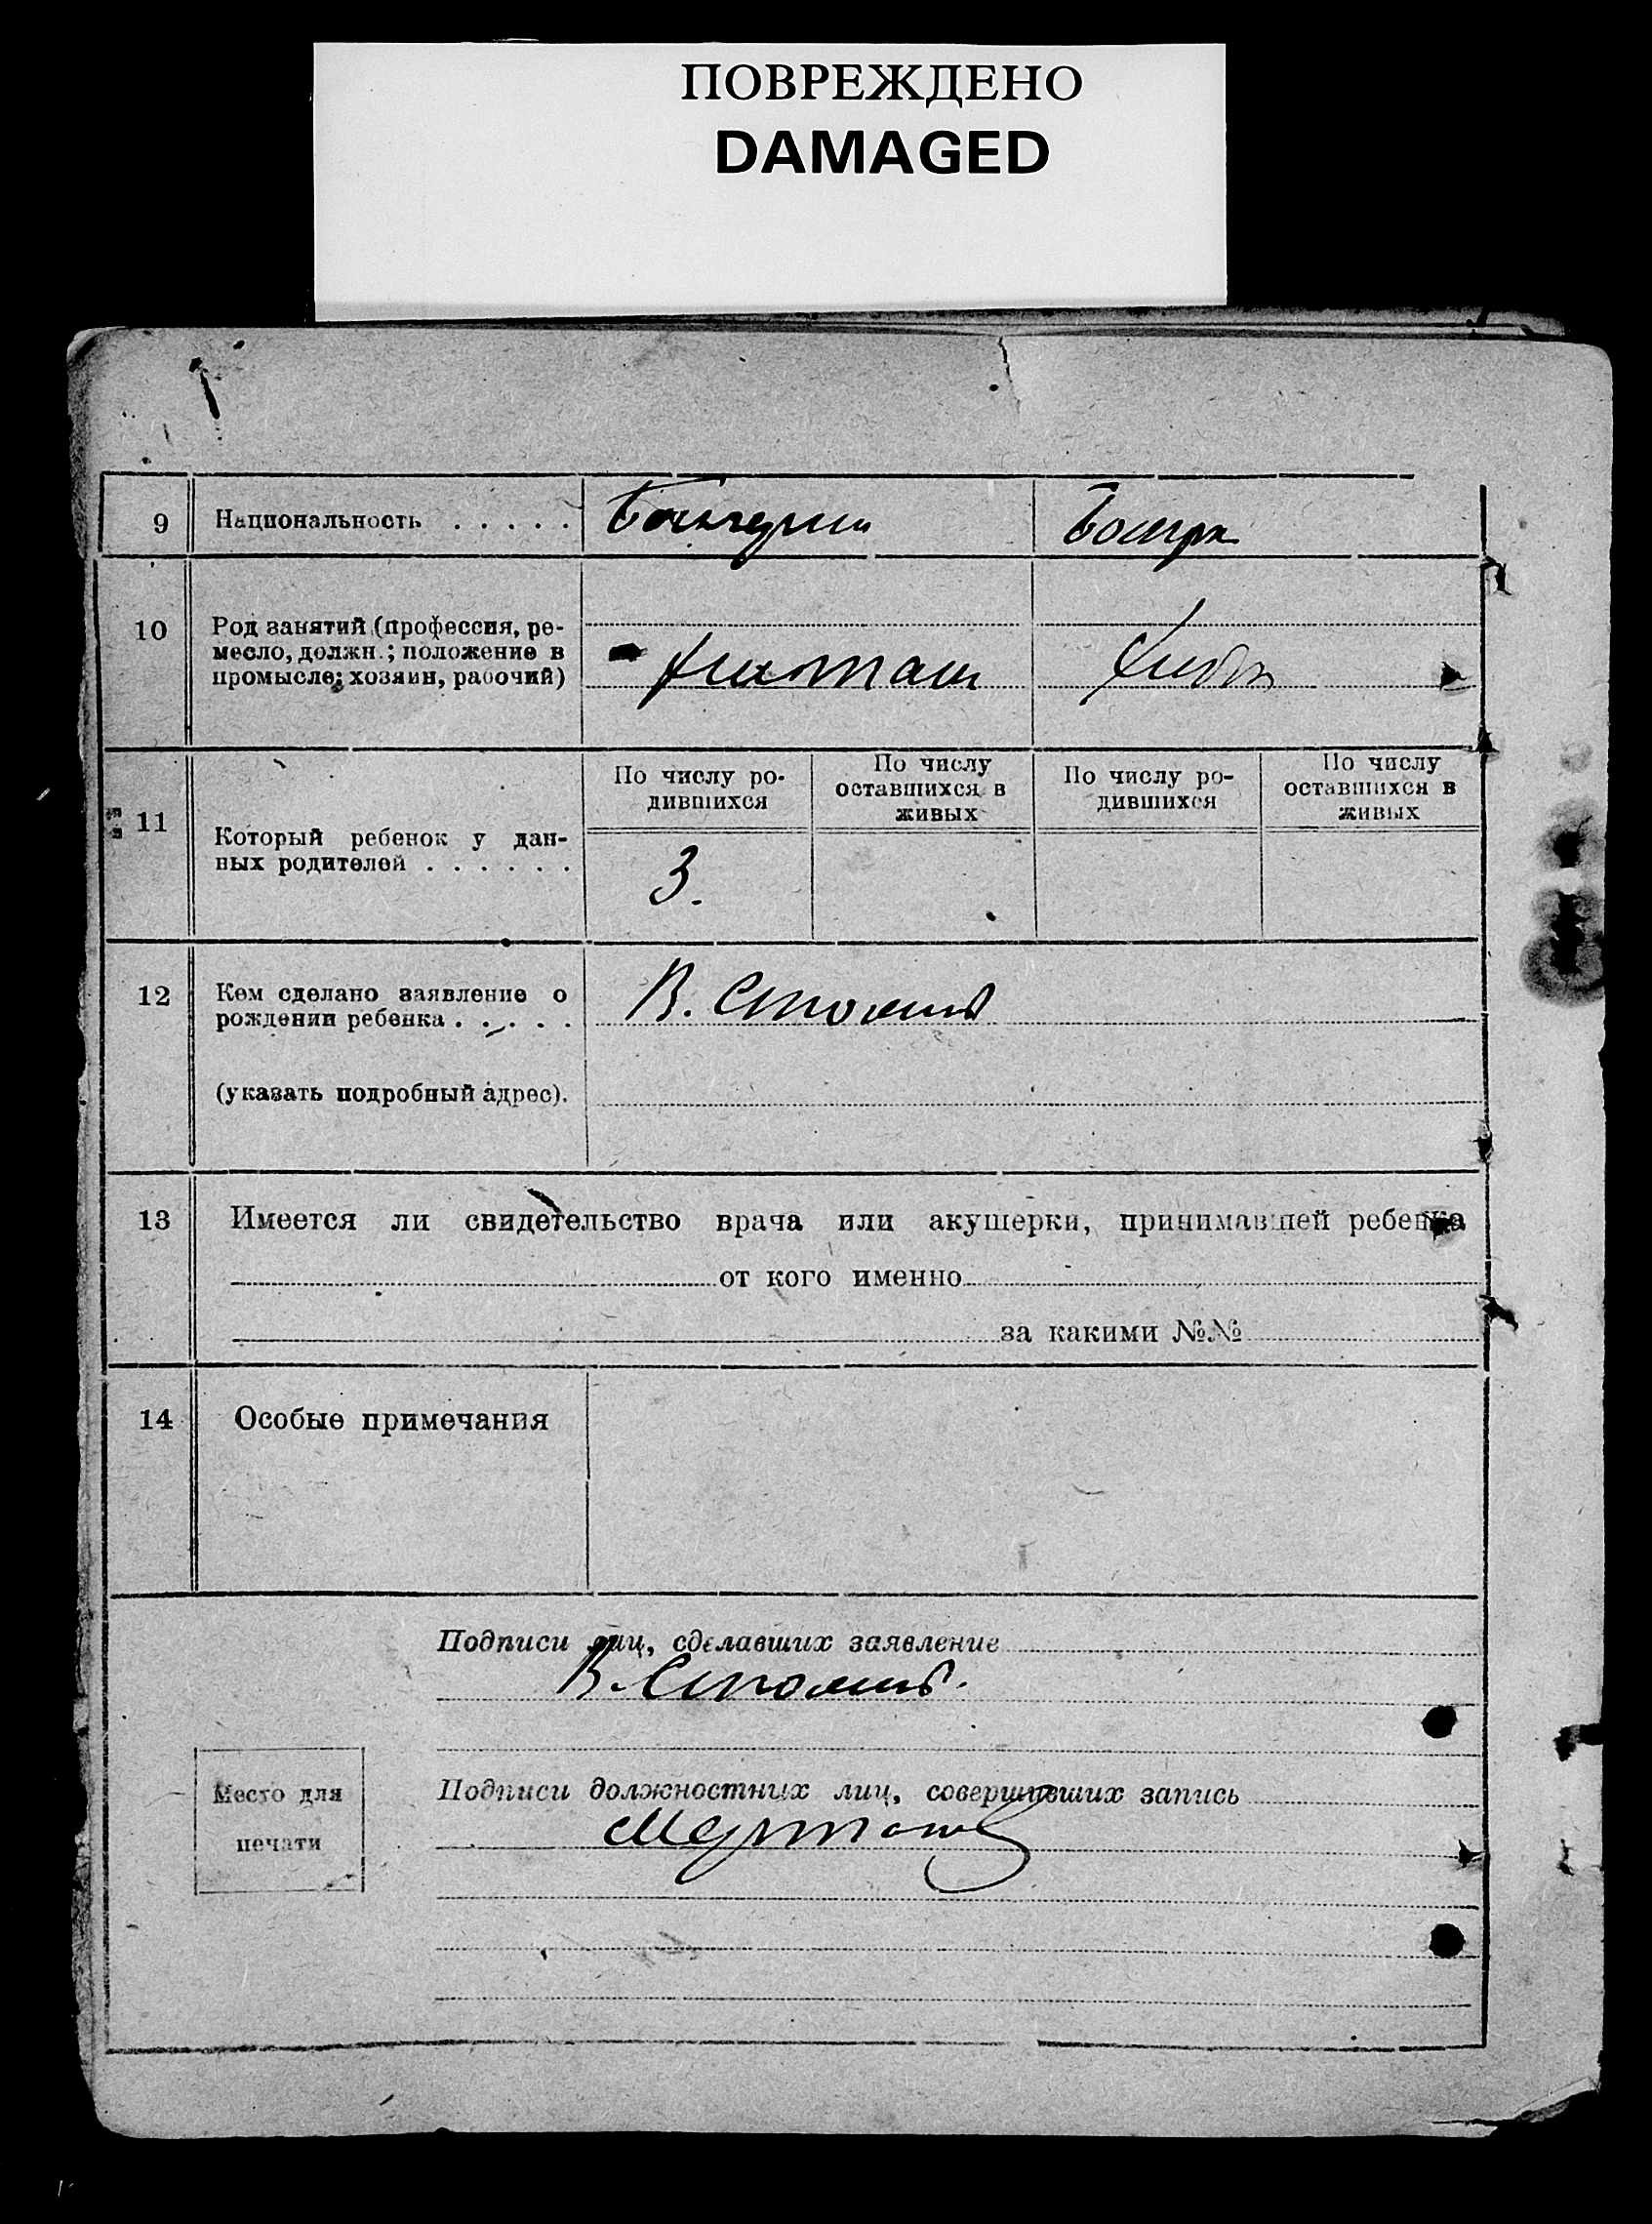 ПОВРЕЖДЕНО
DAMAGED
9 Национальность . . . . .
10 Род занятий (профессия, ре-
месло, должн.; положение в
промысле: хозяин, рабочий)
11 Который ребенок у дан-
ных родителей . . . . . .
По числу ро-
дившихся
По числу
оставшихся в
живых
По числу ро-
дившихся
По числу
оставшихся в
живых
3.
12 Кем сделано заявление о
рождении ребенка . . . . .
В.
(указать подробный адрес).
13 Имеется ли свидетельство врача или акушерки, принимавшей ребенка
от кого именно
за какими №№
14 Особые примечания
Подписи лиц, сделавших заявление
В.
Место для
печати
Подписи должностных лиц, совершивших запись